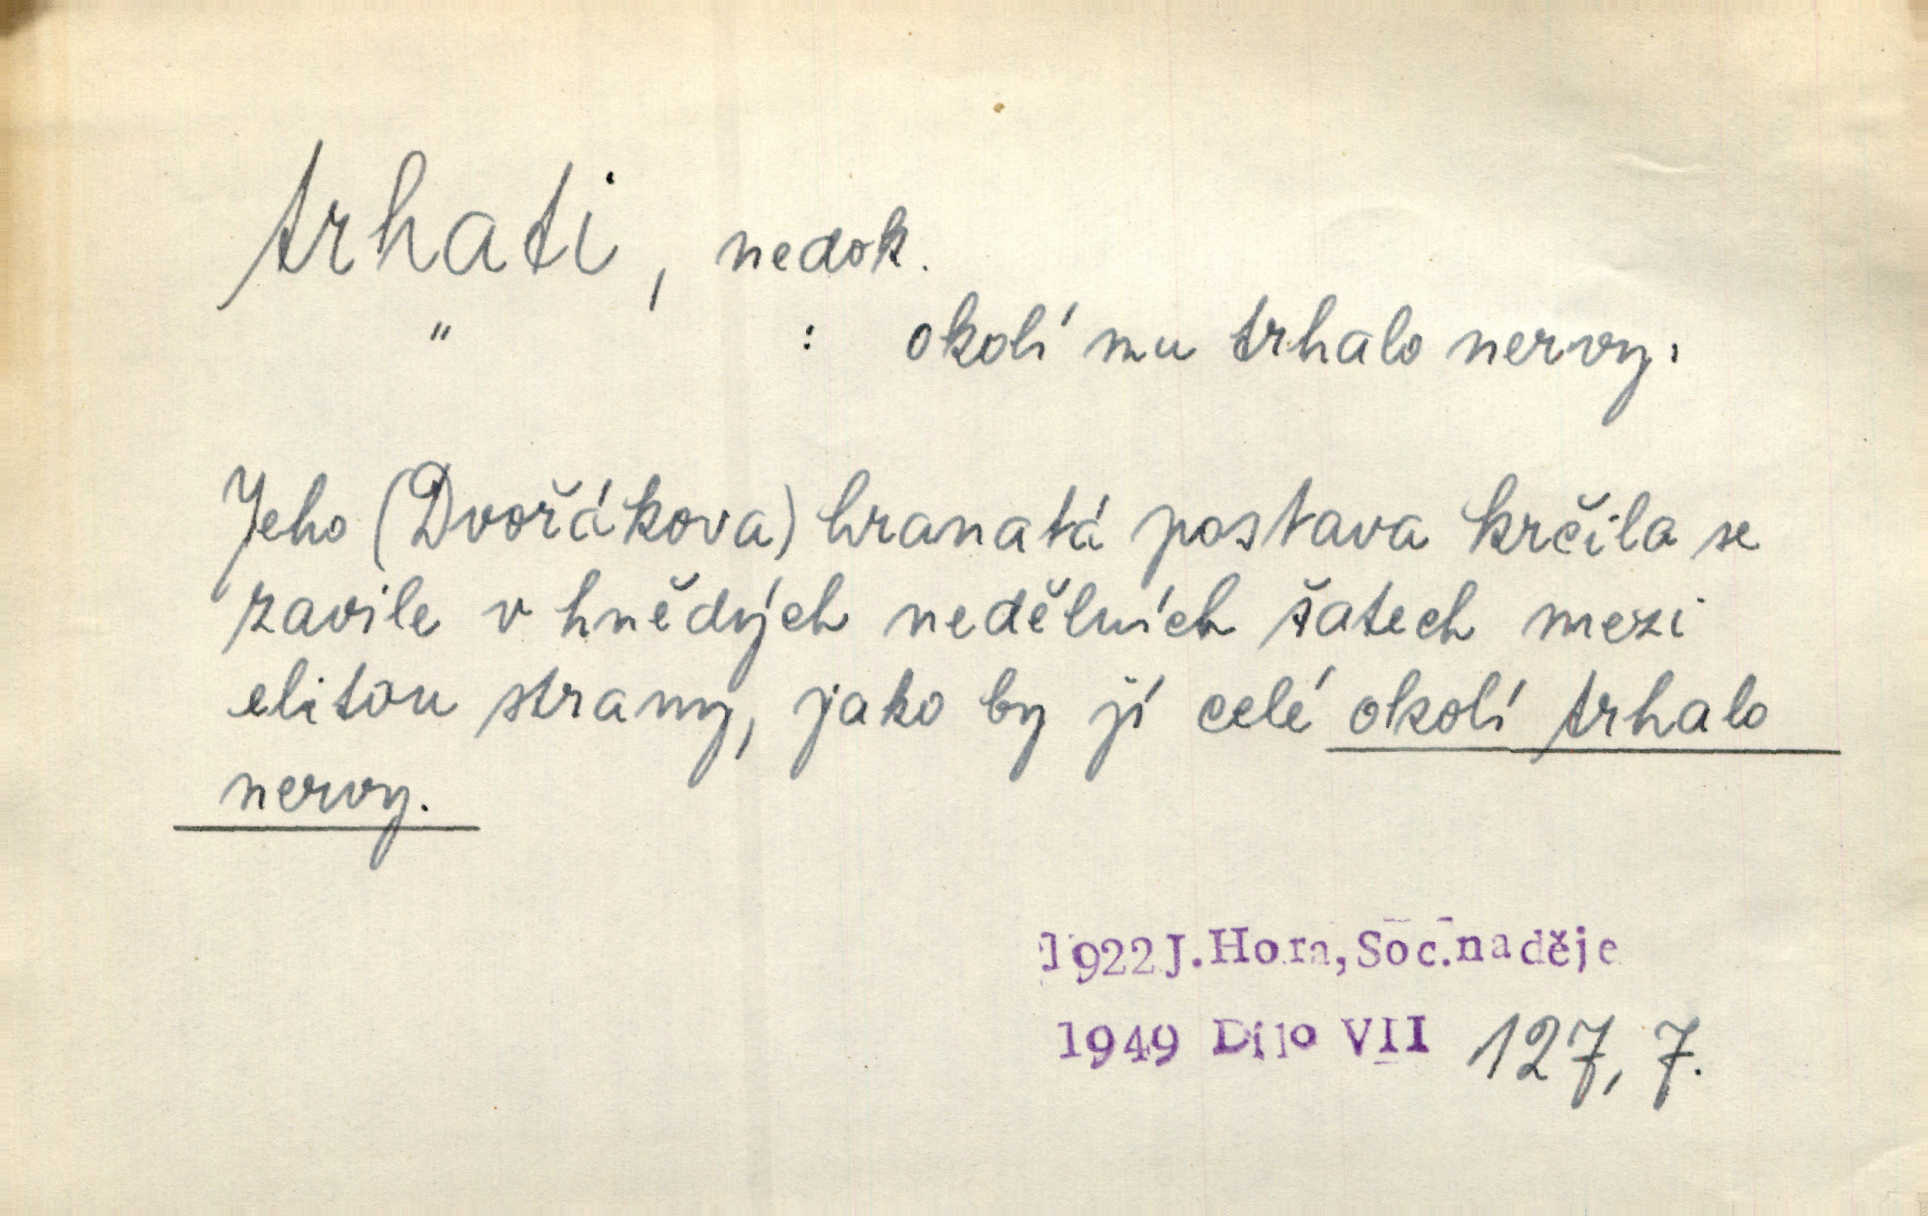 trhati, nedok.
" : okolí mu trhalo nervy.
Jeho (Dvořákova) hranatá postava krčila se
zavile v hnědých nedělních šatech mezi
elitou strany, jako by jí celé okolí trhalo
nervy.
1922 J. Hora, Soc. naděje
1949 Dílo VII 127, 7.